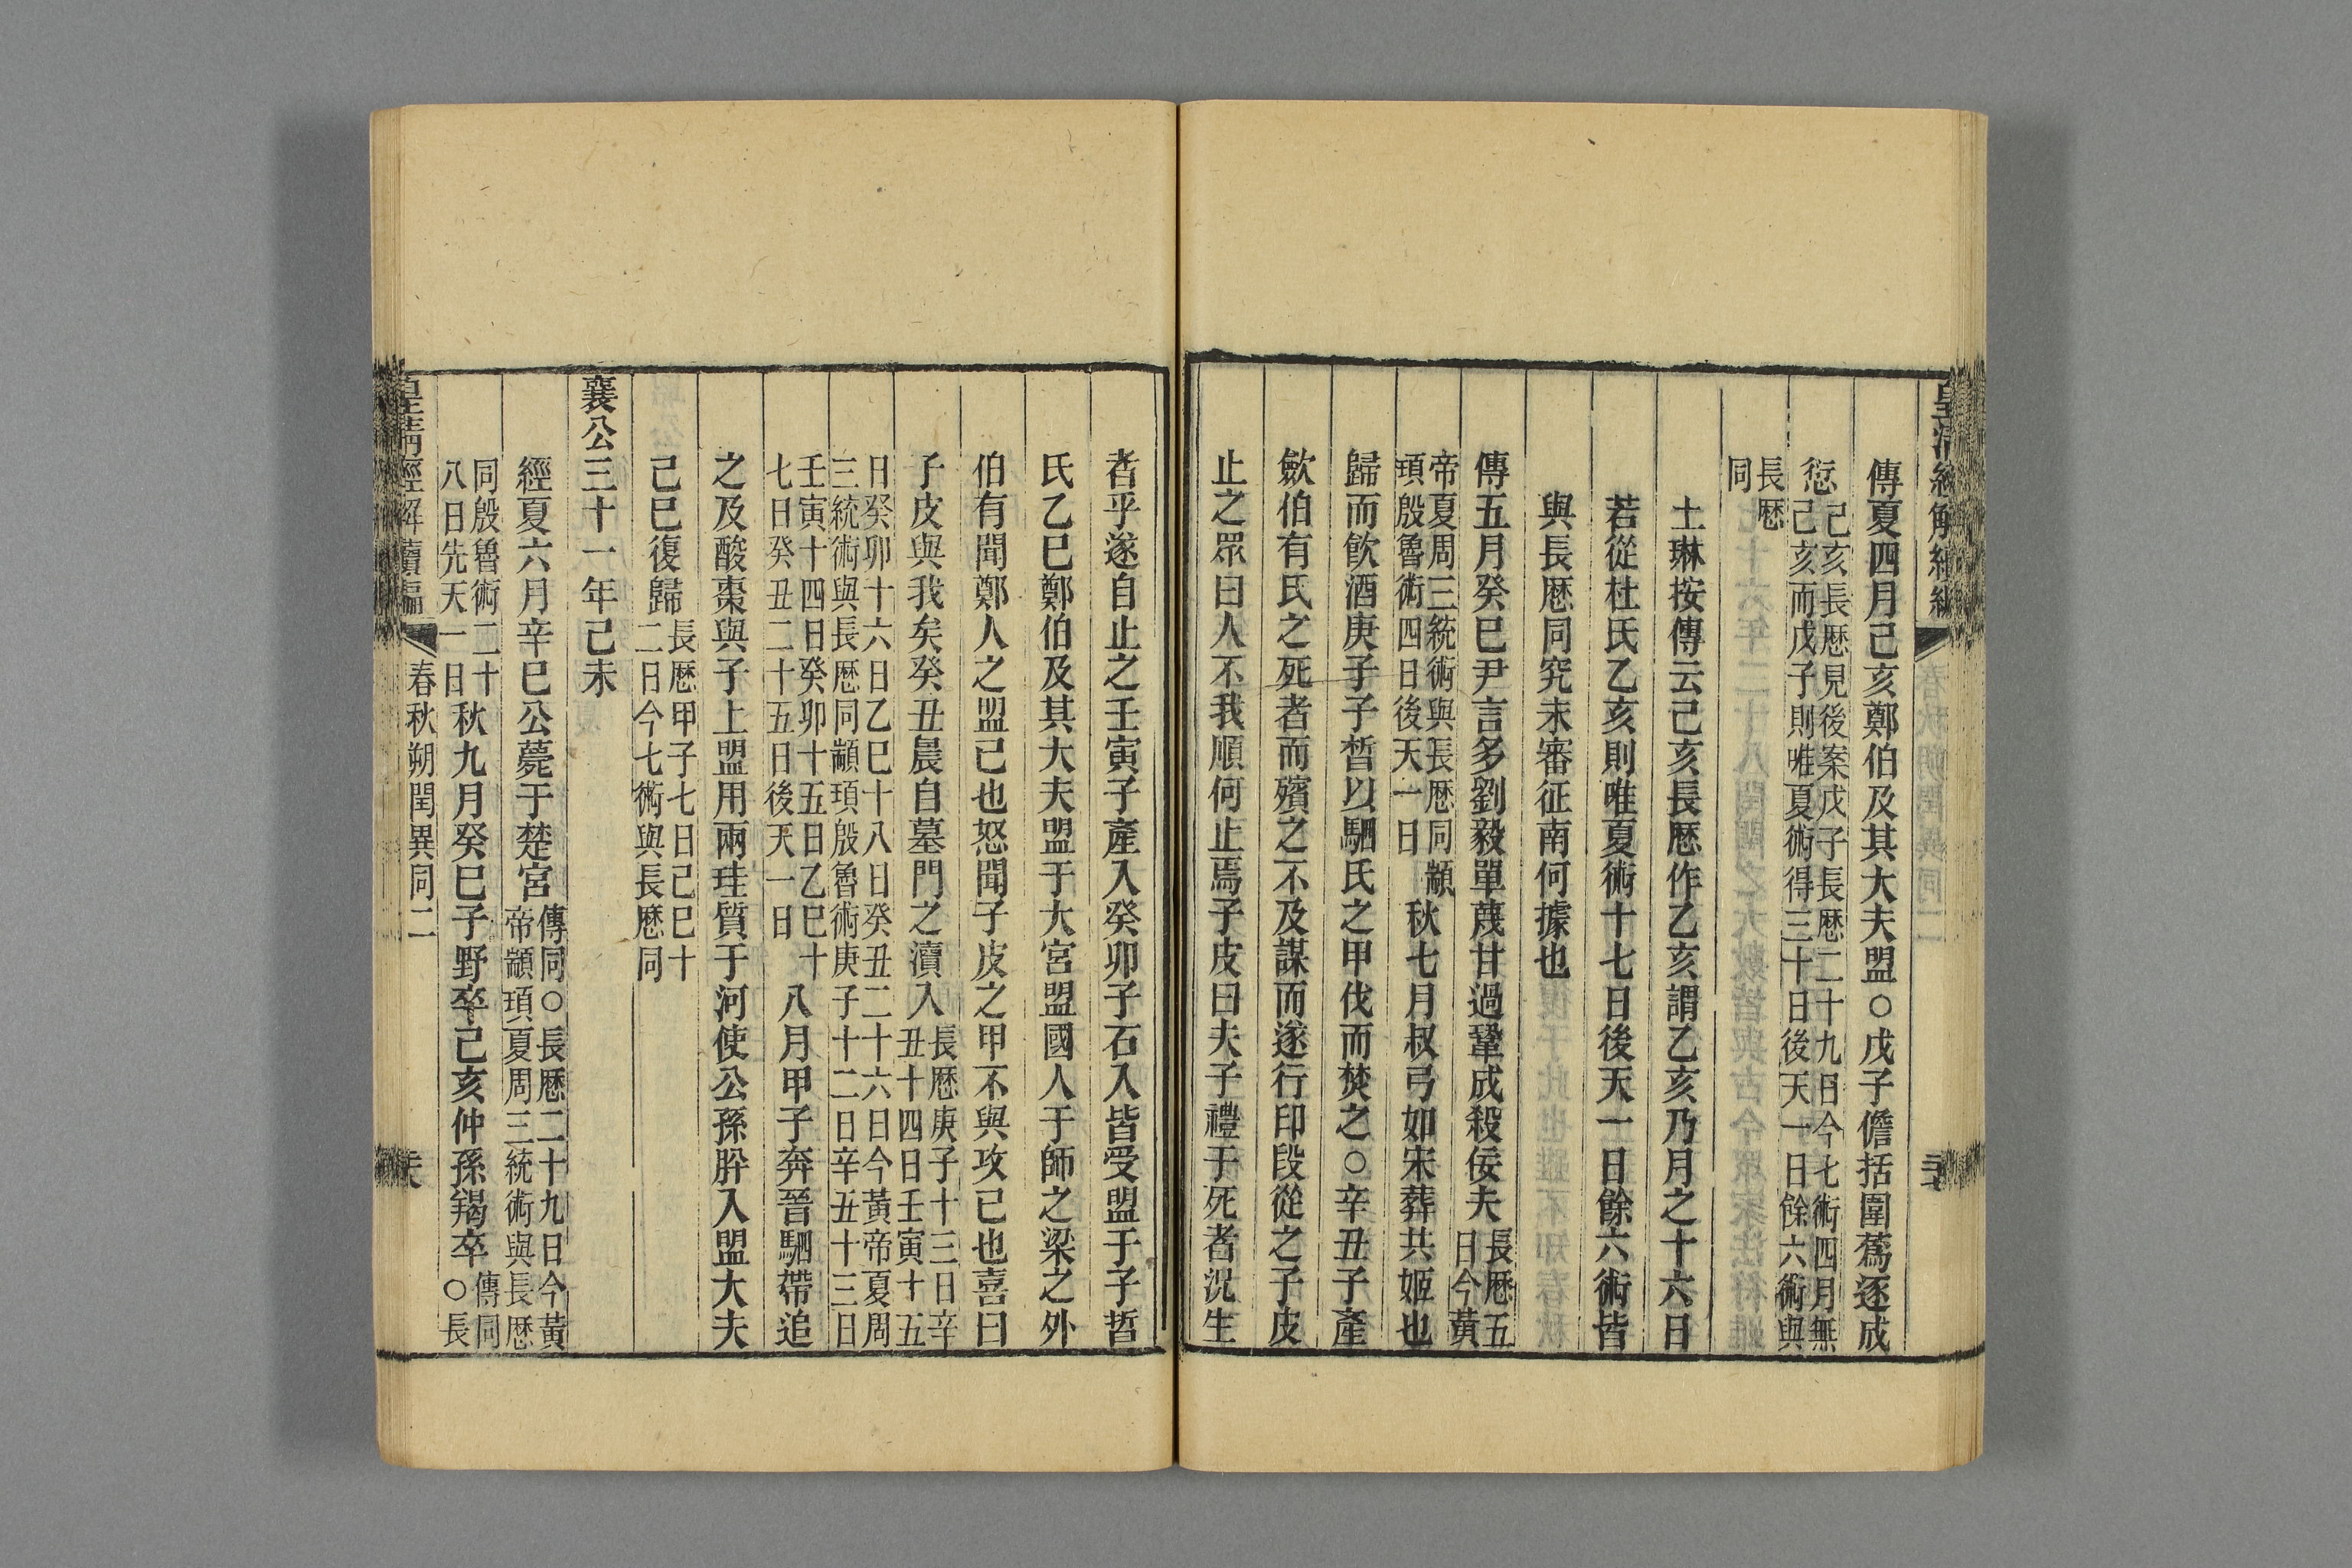 皇清經解續編
傳夏四月己亥鄭伯及其大夫盟○戊子儋括圍蔿逐成
愆己亥長厯見後案戊子長厯二十九日今七術四月無
己亥而戊子則唯夏術得三十日後天一日餘六術與
長厯
同
士琳按傳云己亥長厯作乙亥謂乙亥乃月之十六日
若從杜氏乙亥則唯夏術十七日後天一日餘六術皆
與長厯同究未審征南何據也
傳五月癸巳尹言多劉毅單蔑甘過鞏成殺佞夫長厯五
日今黃
帝夏周三統術與長厯同顓
頊殷魯術四日後天一日秋七月叔弓如宋葬共姬也
歸而飮酒庚子子晳以駟氏之甲伐而焚之○辛丑子產
斂伯有氏之死者而殯之不及謀而遂行印段從之子皮
止之眾曰人不我順何止焉子皮曰夫子禮于死者況生
者乎遂自止之壬寅子產入癸卯子石入皆受盟于子晳
氏乙巳鄭伯及其大夫盟于大宮盟國人于師之梁之外
伯有聞鄭人之盟己也怒聞子皮之甲不與攻己也喜曰
子皮與我矣癸丑晨自墓門之瀆入長厯庚子十三日辛
丑十四日壬寅十五
日癸卯十六日乙巳十八日癸丑二十六日今黃帝夏周
三統術與長厯同顓頊殷魯術庚子十二日辛丑十三日
壬寅十四日癸卯十五日乙巳十
七日癸丑二十五日後天一日八月甲子奔晉駟帶追
之及酸棗與子上盟用兩珪質于河使公孫肸入盟大夫
己巳復歸長厯甲子七日己巳十
二日今七術與長厯同
襄公三十一年己未
經夏六月辛巳公薨于楚宮傳同○長厯二十九日今黃
帝顓頊夏周三統術與長厯
同殷魯術二十
八日先天一日秋九月癸巳子野卒己亥仲孫羯卒傳同
○長
皇清經解續編
春秋朔閏異同二